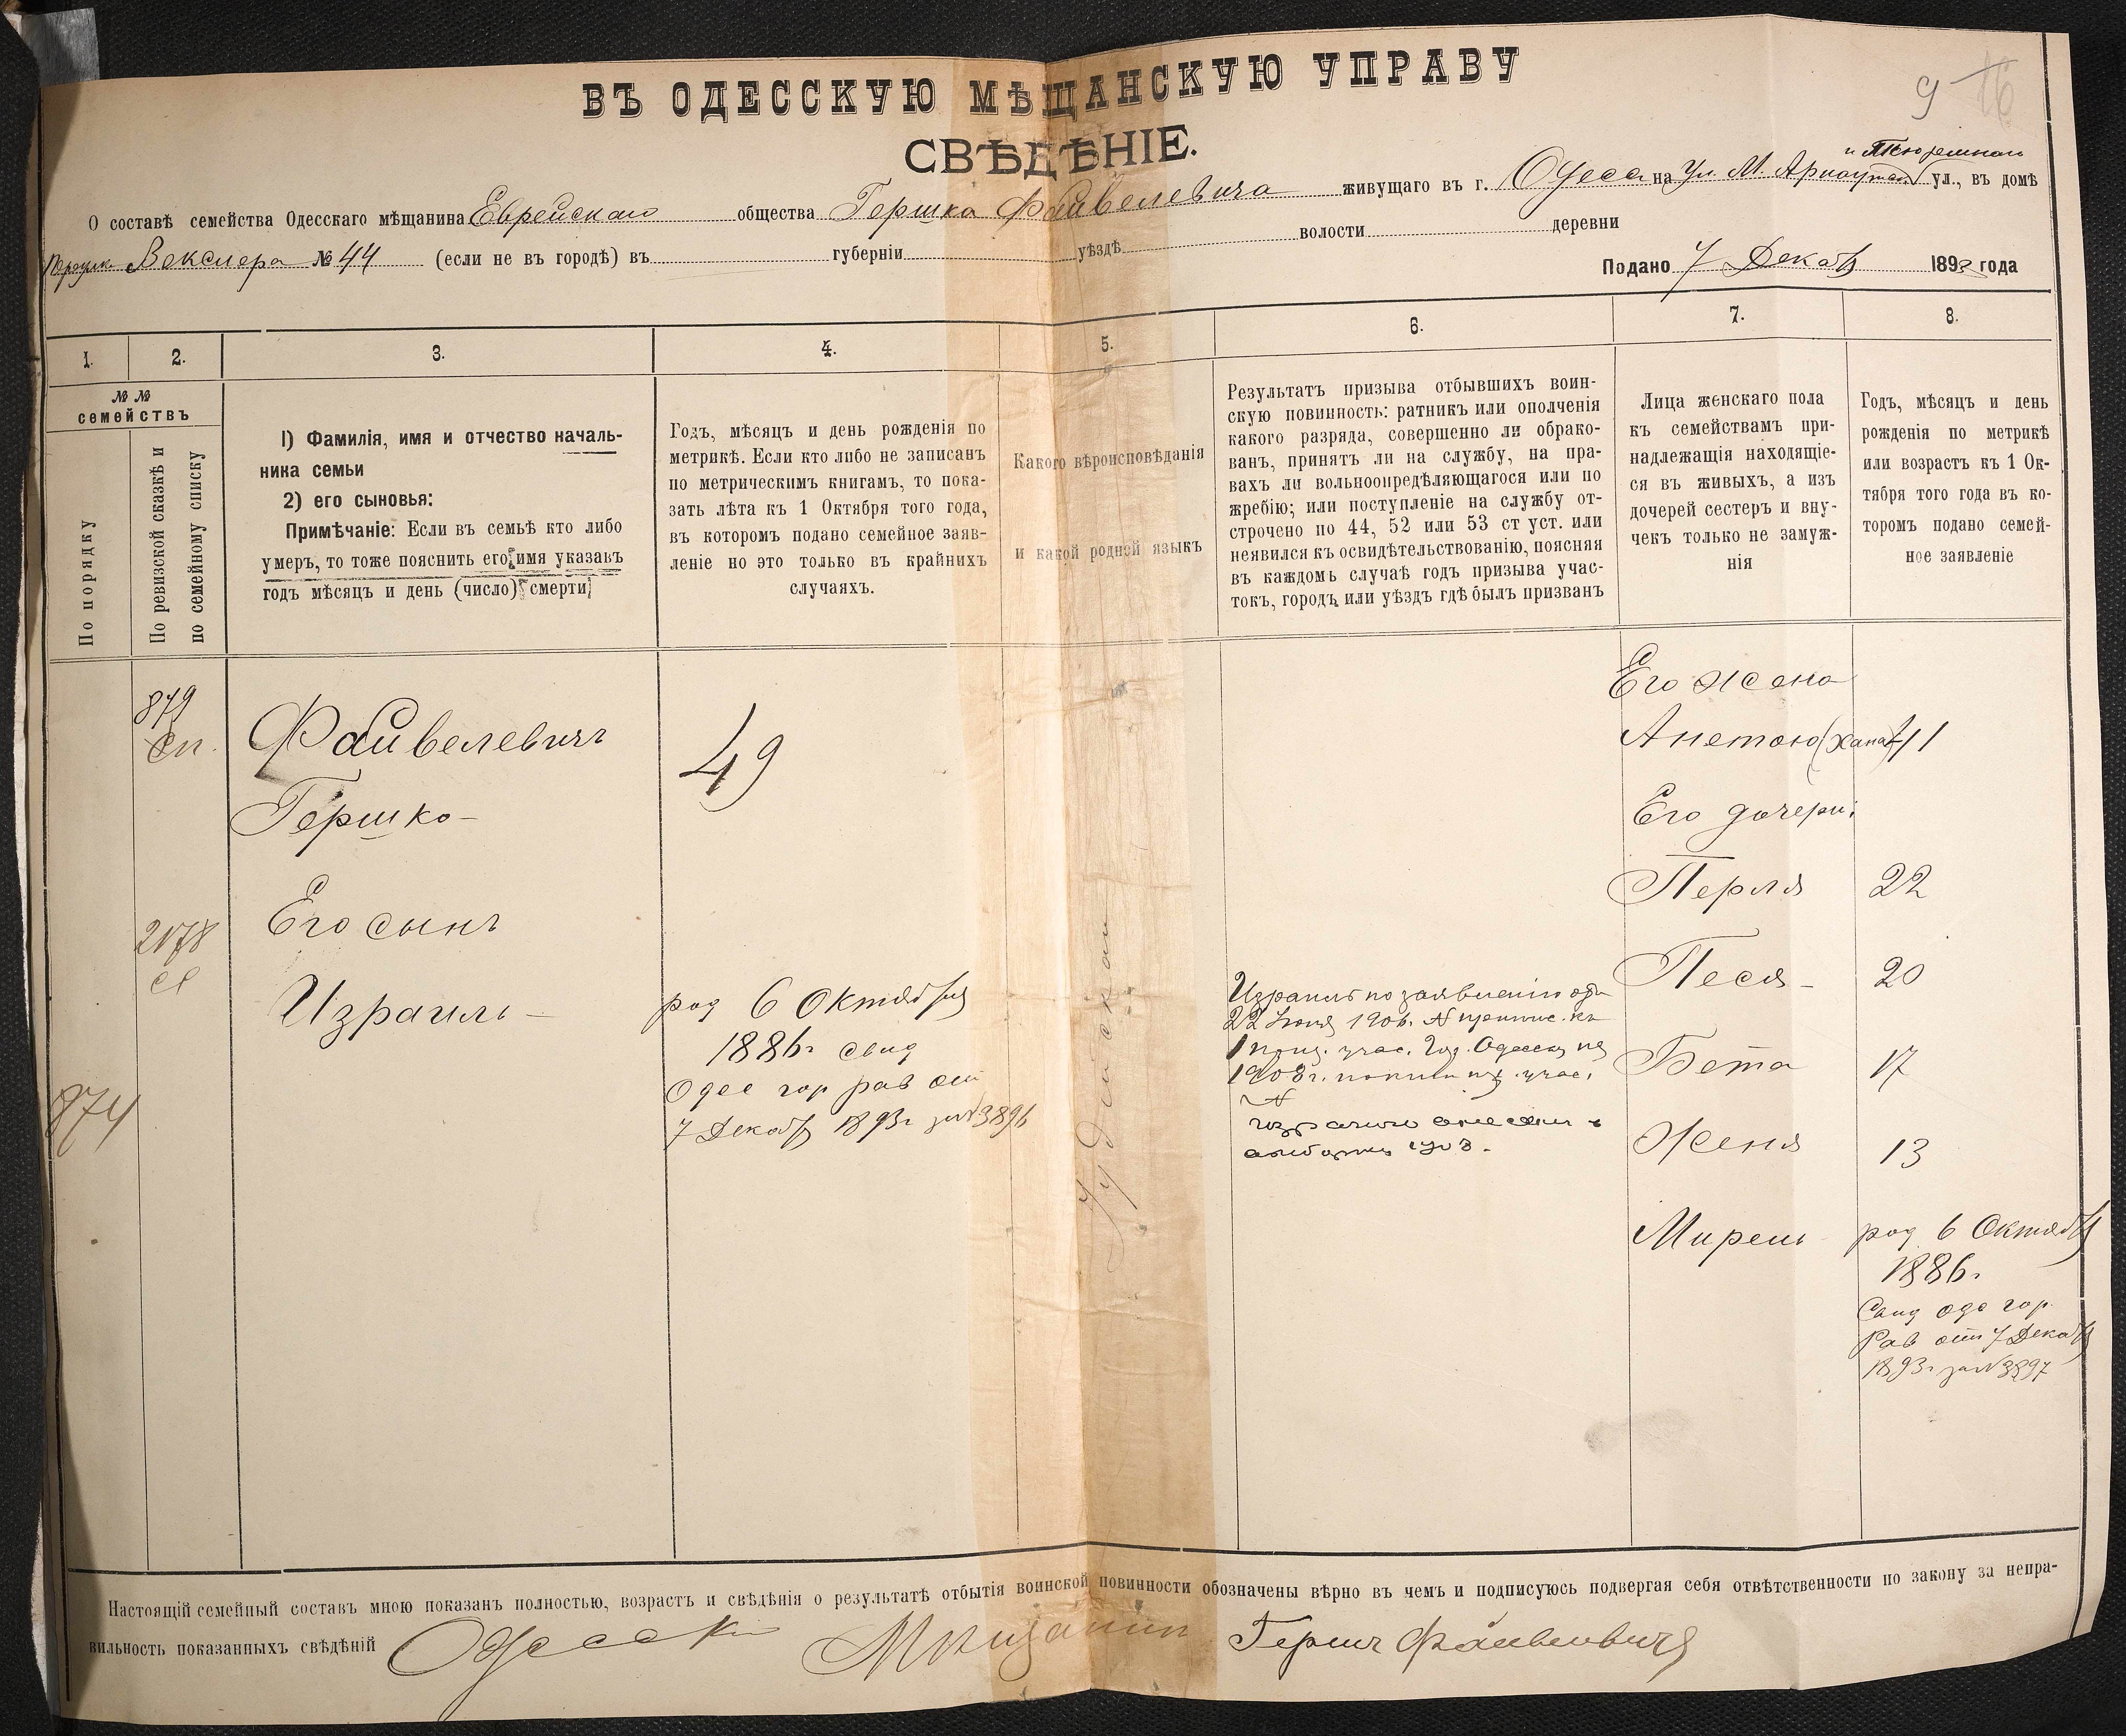 9 16
ВЪ ОДЕССКУЮ МѢЩАНСКУЮ УПРАВУ
СВѢДѢНІЕ.
и Тюремная
О составѣ семейства Одесскаго мѣщанина Еврейскаго общества Гершка Файвелевича живущаго въ г. Одеса на Ул. М. Арнаутская ул., въ домѣ
Векслера № 44 (если не въ городѣ) въ губерніи уѣздѣ волости деревни
Подано 7 Декаб 1893 года
1. 2. 3. 4. 5. 6. 7. 8.
№ № семействъ
По порядку
По ревизской сказкѣ и
по семейному списку
1) Фамилія, имя и отчество началь-
ника семьи
2) его сыновья:
Примѣчаніе: Если въ семьѣ кто либо
умеръ, то тоже пояснить его имя указавъ
годъ мѣсяцъ и день (число) смерти
Годъ, мѣсяцъ и день рожденія по
метрикѣ. Если кто либо не записанъ
по метрическимъ книгамъ, то пока-
зать лѣта къ 1 Октября того года,
въ которомъ подано семейное заяв-
леніе но это только въ крайнихъ
случаяхъ.
Какого вѣроисповѣданія
и какой родной языкъ
Результатъ призыва отбывшихъ воин-
скую повинность: ратникъ или ополченія
какого разряда, совершенно ли обрако-
ванъ, принятъ ли на службу, на пра-
вахъ ли вольноопредѣляющагося или по
жребію; или поступленіе на службу от-
строчено по 44, 52 или 53 ст уст. или
неявился къ освидѣтельствованію, поясняя
въ каждомъ случаѣ годъ призыва учас-
токъ, городъ или уѣздъ гдѣ былъ призванъ
Лица женскаго пола
къ семействамъ при-
надлежащія находящіе-
ся въ живыхъ, а изъ
дочерей сестеръ и вну-
чекъ только не замуж-
нія
Годъ, мѣсяцъ и день
рожденія по метрикѣ
или возрастъ къ 1 Ок-
тября того года въ ко-
торомъ подано семей-
ное заявленіе
879
сп.
Файвелевичъ
49
Гершко
2178
Его сынъ
Израиль
874
род 6 Октября
1886г свид
Одес гор рав от
7 Декаб 1893г за№3896
Іудейская
Израиль по заявленію от
22 1906г. къ
1 приз. учас. Гор. Одессы на
1908г. учас.
1903.
Его жена
Анетою (Хана) 41
Его дочери:
Перля 22
Песя 20
Бета 17
Женя 13
Мирель род 6 Октяб
1886г
Свид оде гор.
Рав от 7 Декаб
1893г за№3897
Настоящій семейный составъ мною показанъ полностью, возрастъ и свѣдѣнія о результатѣ отбытія воинской повинности обозначены вѣрно въ чемъ и подписуюсь подвергая себя отвѣтственности по закону за непра-
вильность показанныхъ свѣдѣній Одесски Мещанин Герш Файвелевичъ